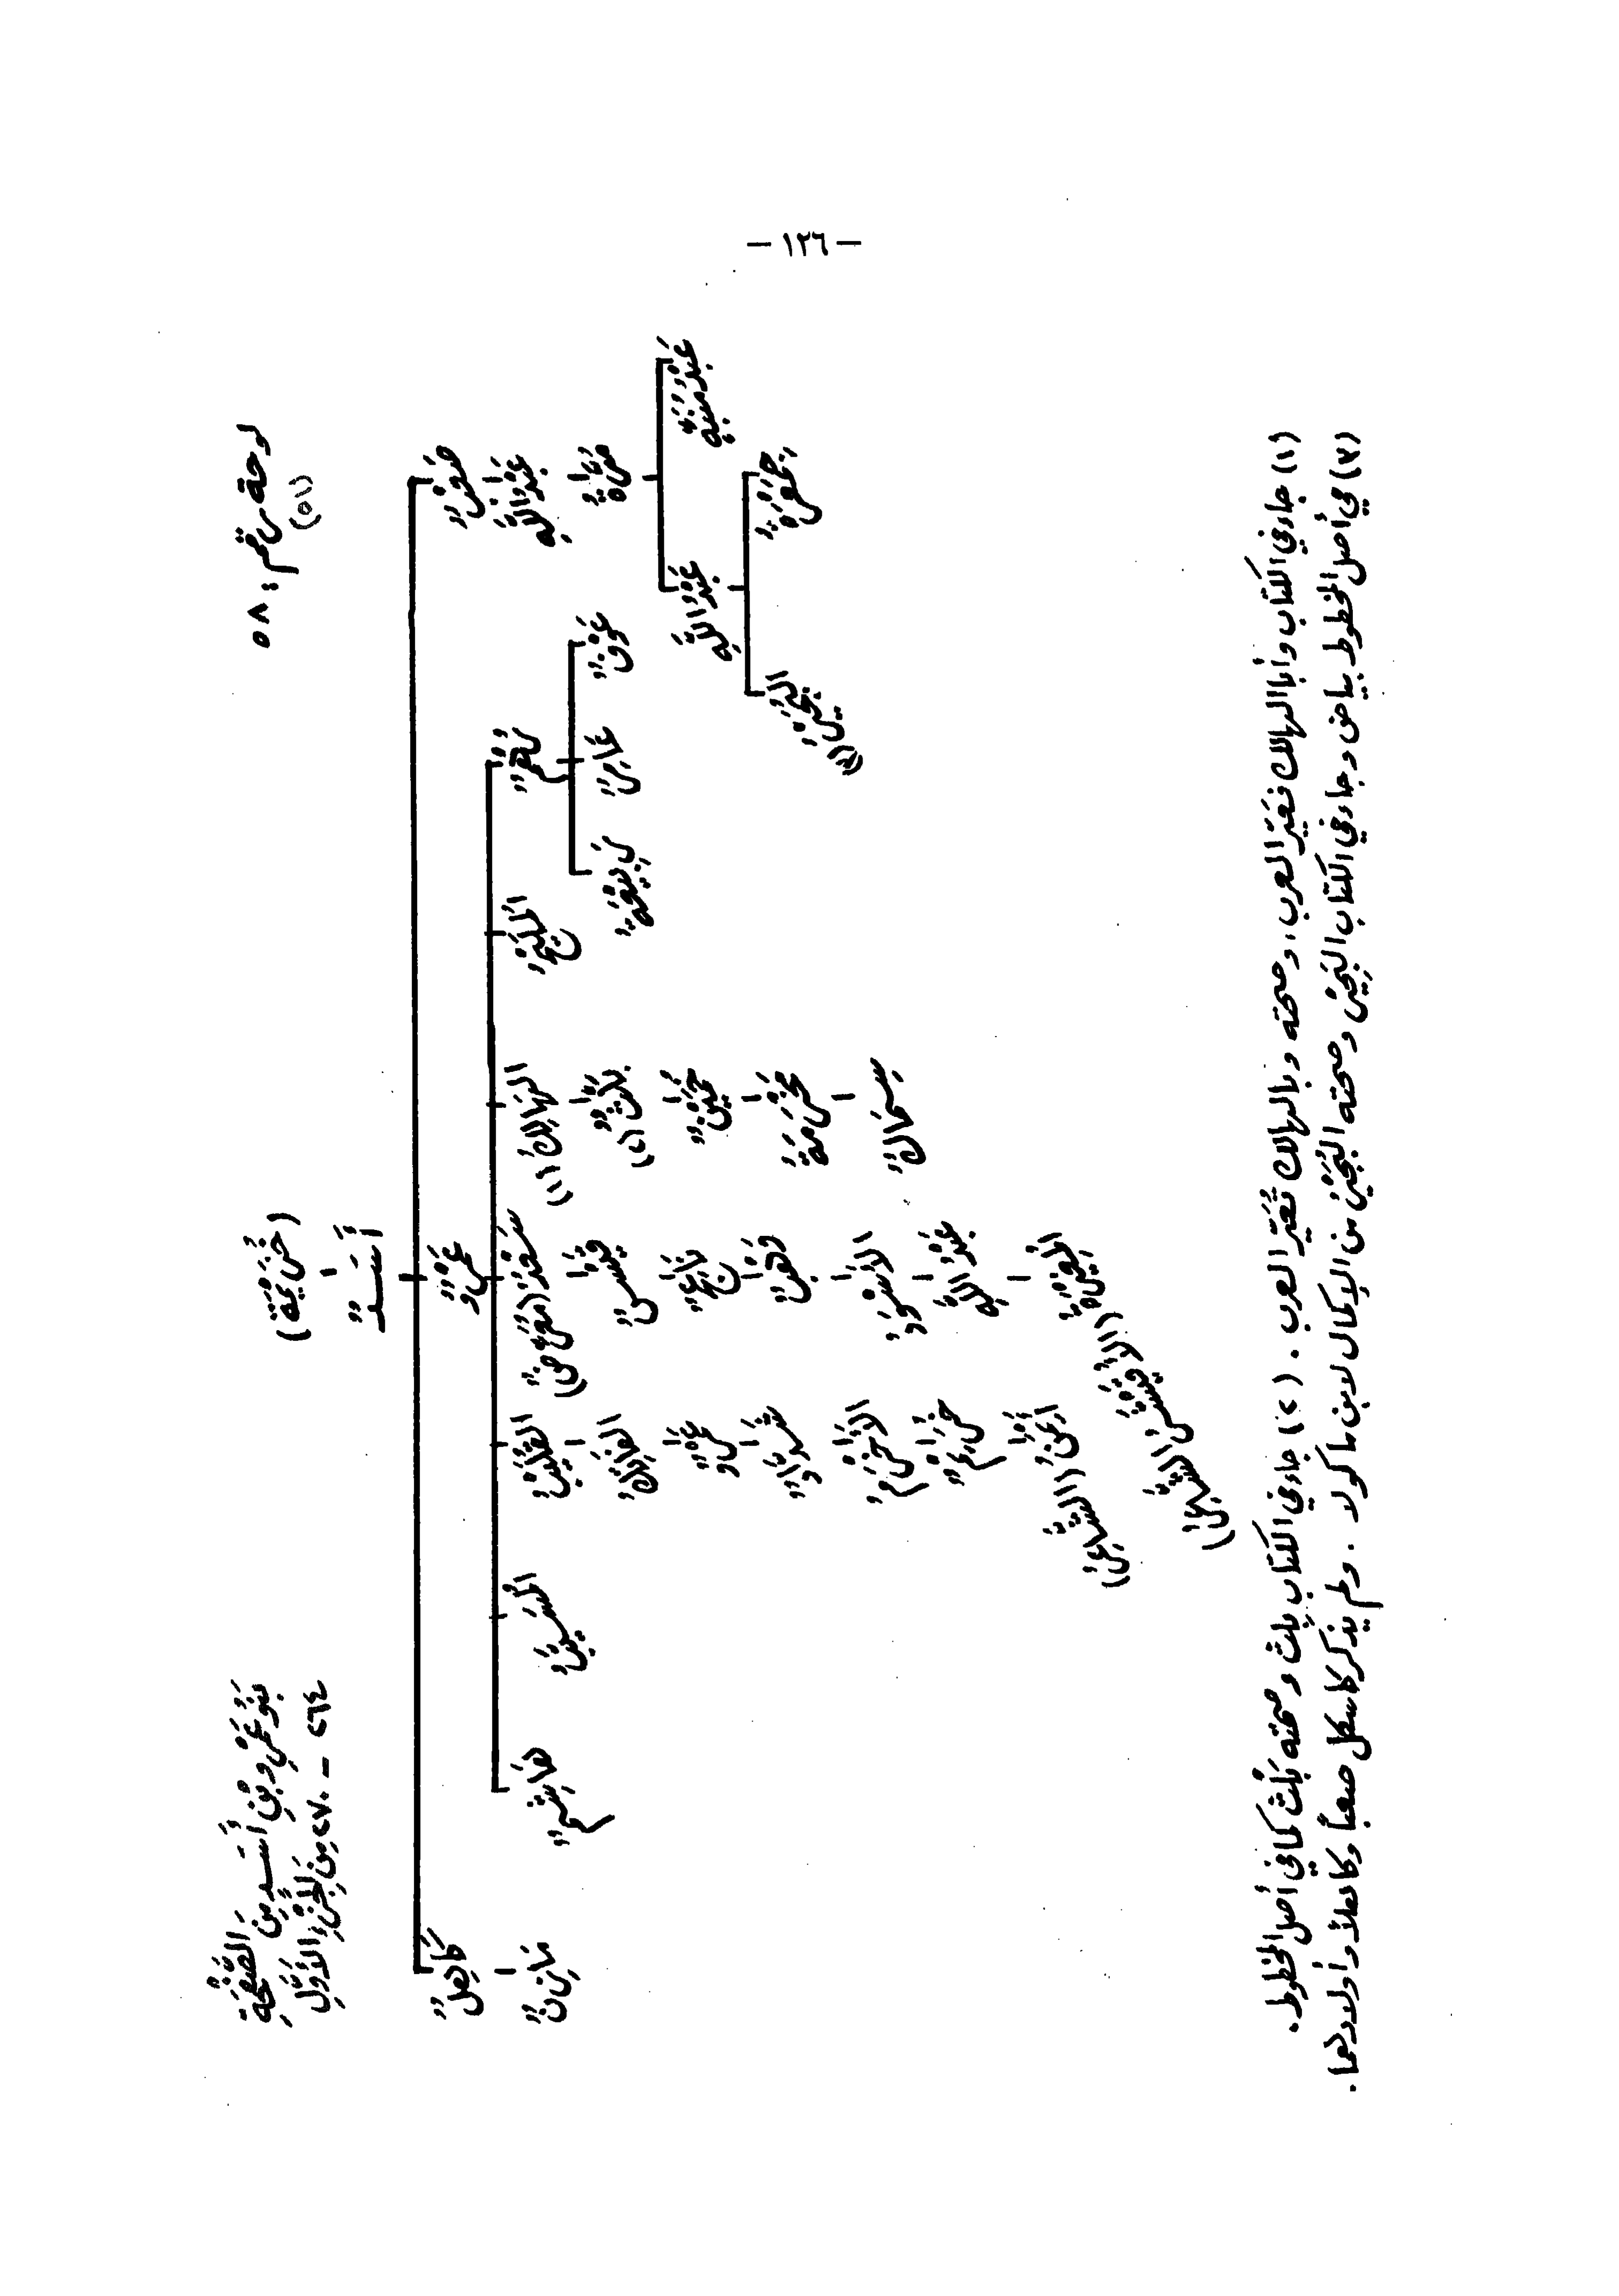 - ١٢٦ -
لوحة رقم : ٥٨
(٥١)
بَنُو عَمْرِو بْنِ أَسَدٍ مِنَ الصَّفْحَةِ
٢٦٤ - ٢٧٠ مِنَ الجُزْءِ الأَوَّلِ
(خُزَيْمَةُ)
أَسَدٌ
صَعْبٌ
عَمْرٌو
كَاهِلٌ
عَبْدُ اللَّهِ
مُرَّةُ
عَبْدُ مُنَبِّهٍ
عَبْدُ اللَّهِ
جَعْفَرَةُ
البُجَيْرُ
(٣)
مَازِنٌ
مُعْرِضٌ
المُلَيْحُ
الهَالِكُ (١)
سَعْدٌ (مُعْرِضٌ)
القُلَيْبُ
هَاشِمٌ
عَوْفٌ
عَامِرٌ
رَبِيعَةُ
بَلْثٌ (٢)
حُمَيْنٌ
مَخْرَمَةُ
سِمَاكٌ
قَيْسٌ
نَاعِجٌ
وَهْبٌ
الأَسْوَدُ
عَبْدُ اللَّهِ
المُغِيرَةُ
(الأُقَيْشِرُ الشَّاعِرُ)
الفَاتِكُ
عَمْرٌو
شَدَّادٌ
الأَخْرَمُ
خُرَيْمٌ
أَيْمَنُ (الشَّاعِرُ)
(١) جاء في الكتاب وأبا الهالك فعَيّر العرب ، وصحته وبالهالك تُعَيّر العرب . (٢) جاء في الكتاب بلث وصحته بَلْث كما في أصل المخطوط .
(٣) في أصل المخطوط بياض وجاء في الكتاب البَجِير وصحته البُجَيْر من الإكمال لابن ماكولا . ولم يذكر كاسكل صعباً وكاهلاً وأولادهما .